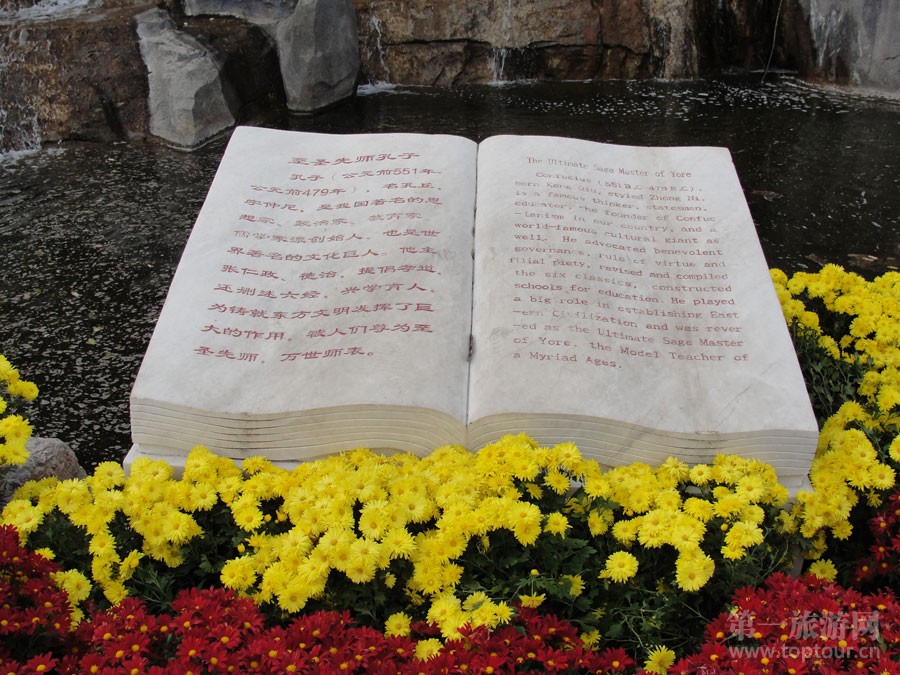 至圣先师孔子
孔子（公元前551年，
公元前479年），名孔丘，
字仲尼，是我国著名的思
想家、政治家、教育家，
儒学家派创始人，也是世
界著名的文化巨人。他主
张仁政、德治，提倡孝道，
还删述六经，兴学育人，
为铸就东方文明发挥了巨
大的作用。被人们尊为至
圣先师，万世师表。
The Ultimate Sage Master of Yore
Confucius (551B.C-479 B.C),
born Kong Qiu, styled Zhong Ni,
is a famous thinker, statesman,
educator, the founder of Confuc
-ianism in our country, and a
world-famous cultural giant as
well. He advocated benevolent
governance, rule of virtue and
filial piety, revised and compiled
the six classics, constructed
schools for education. He played
a big role in establishing East
-ern Civilization and was rever
-ed as the Ultimate Sage Master
of Yore, the Model Teacher of
a Myriad Ages.
第一旅游网
www.toptour.cn